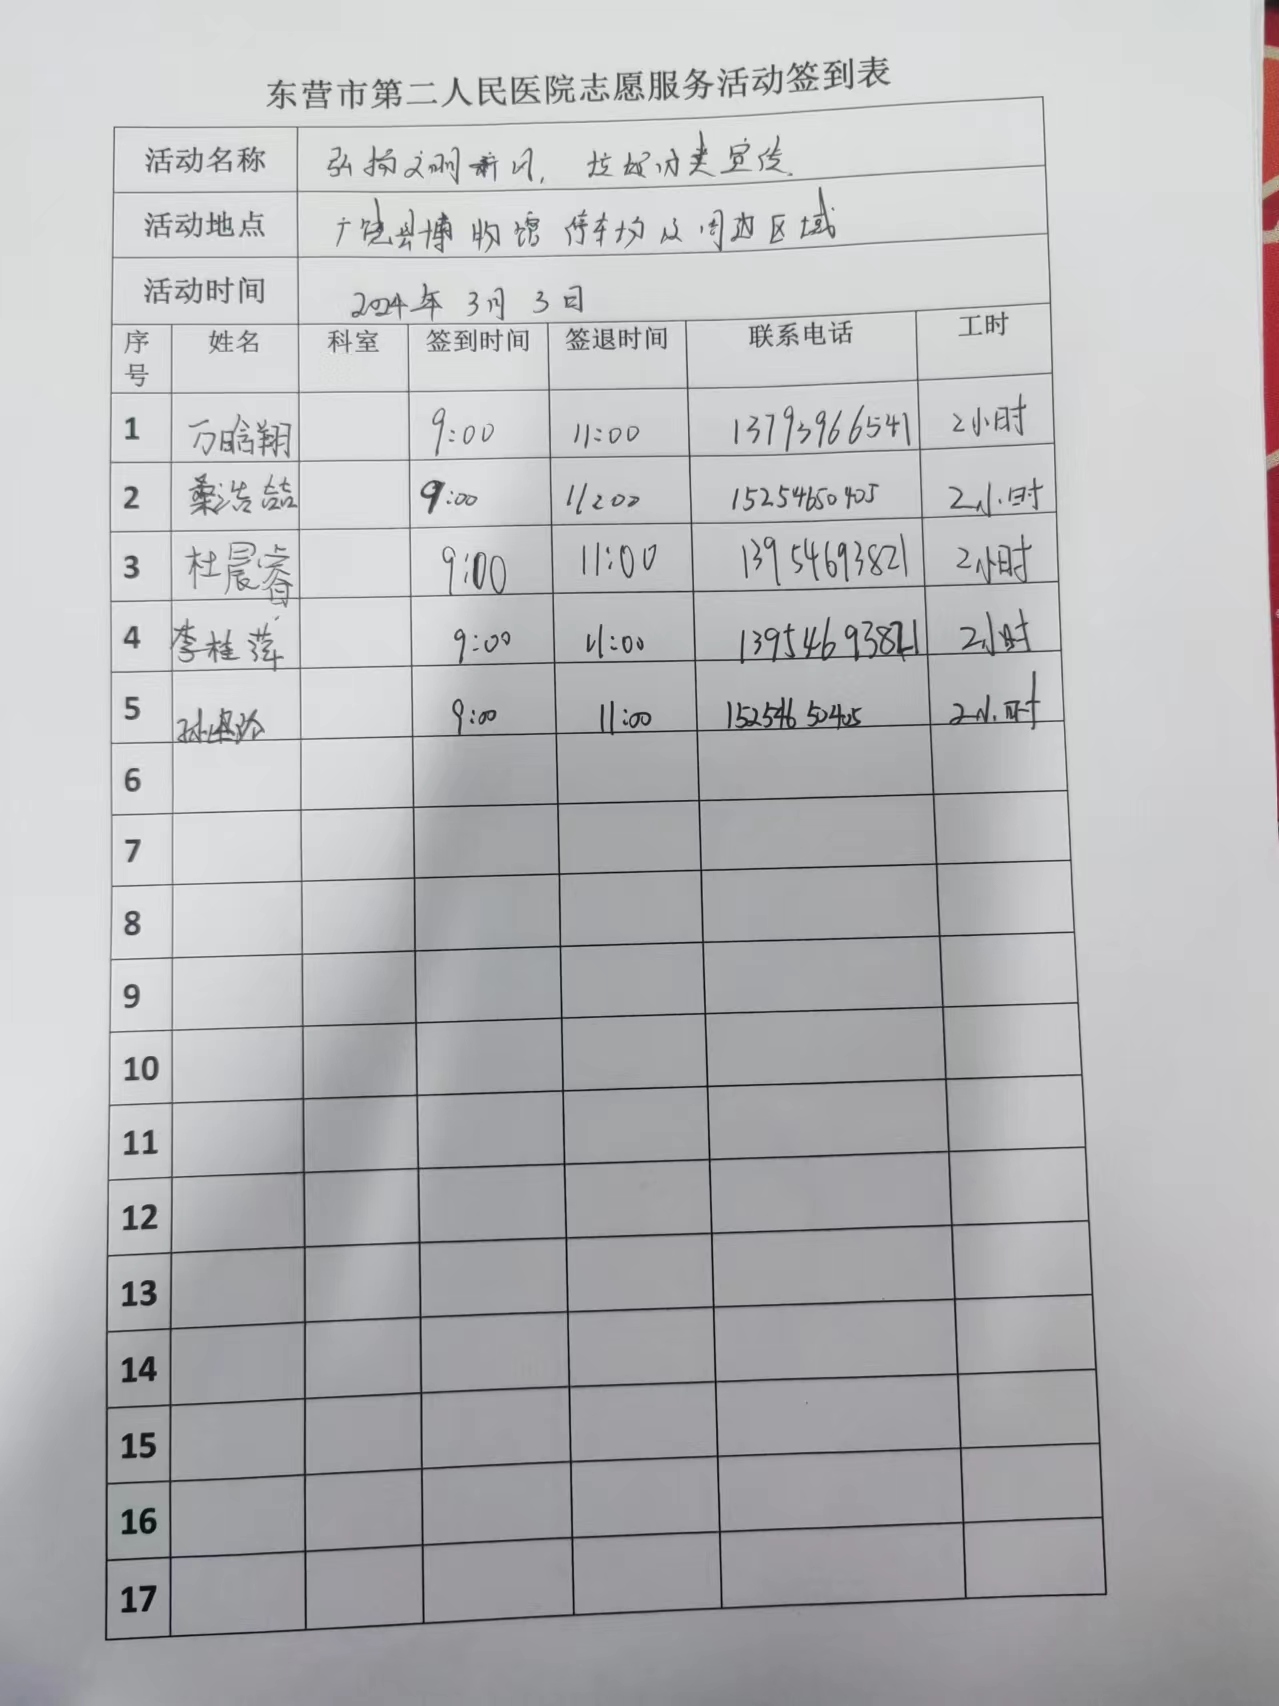 东营市第二人民医院志愿服务活动签到表
活动名称 弘扬文明新风，垃圾分类宣传.
活动地点 广饶县博物馆停车场及周边区域
活动时间 2024年3月3日
序号 姓名 科室 签到时间 签退时间 联系电话 工时
1 万晗翔 9:00 11:00 13793966541 2小时
2 桑浩喆 9:00 11:00 15254650405 2小时
3 杜晨睿 9:00 11:00 13954693821 2小时
4 李桂萍 9:00 11:00 13954693821 2小时
5 9:00 11:00 15254650405 2小时
6
7
8
9
10
11
12
13
14
15
16
17